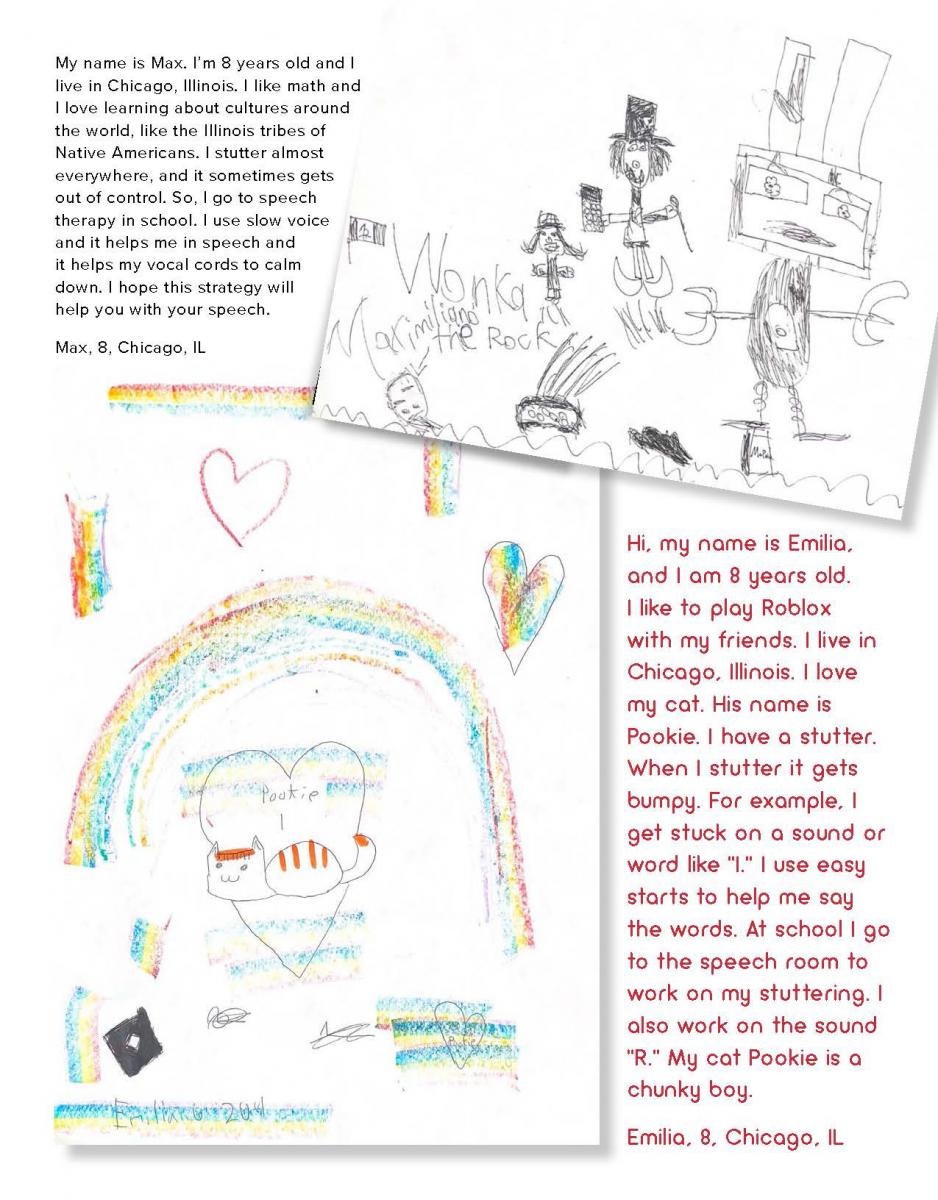 My name is Max. I'm 8 years old and I
live in Chicago, Illinois. I like math and
I love learning about cultures around
the world, like the Illinois tribes of
Native Americans. I stutter almost
everywhere, and it sometimes gets
out of control. So, I go to speech
therapy in school. I use slow voice
and it helps me in speech and
it helps my vocal cords to calm
down. I hope this strategy will
help you with your speech.
Max, 8, Chicago, IL
Wonka
Maximiliano
the Rock
Hi, my name is Emilia,
and I am 8 years old.
I like to play Roblox
with my friends. I live in
Chicago, Illinois. I love
my cat. His name is
Pookie. I have a stutter.
When I stutter it gets
bumpy. For example, I
get stuck on a sound or
word like "I." I use easy
starts to help me say
the words. At school I go
to the speech room to
work on my stuttering. I
also work on the sound
"R." My cat Pookie is a
chunky boy.
Emilia, 8, Chicago, IL
Pookie